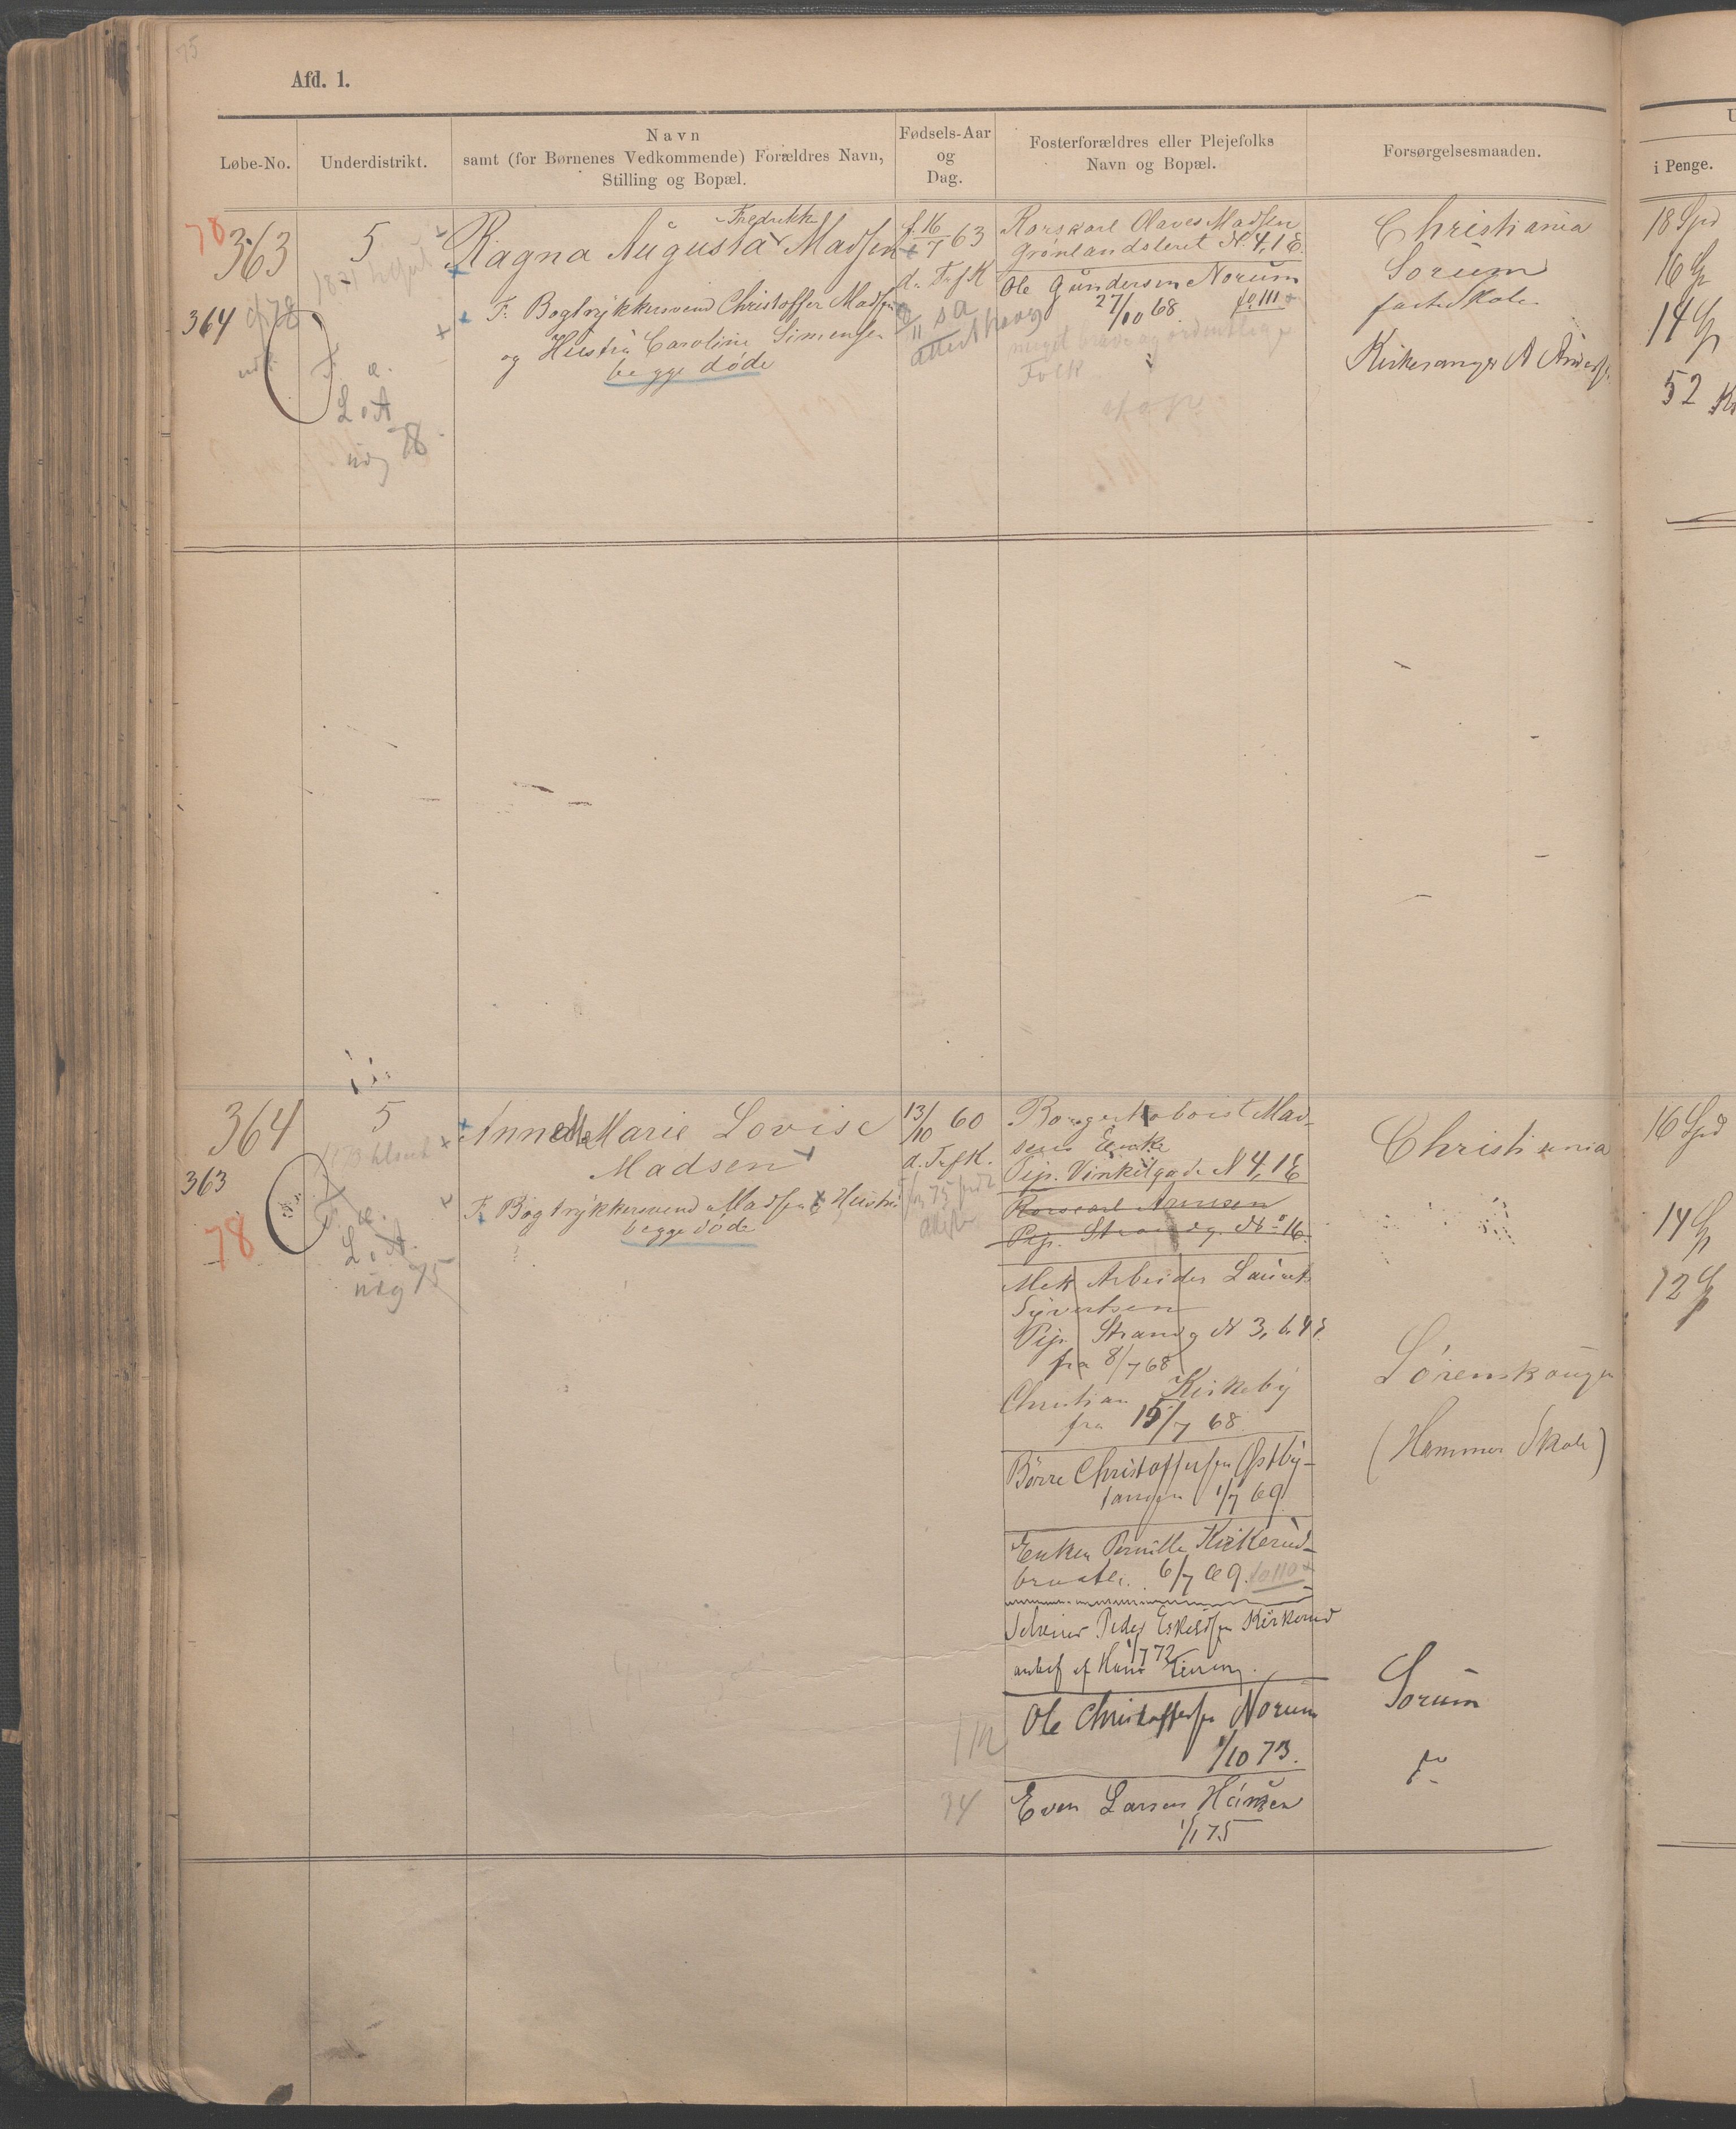 75
Afd. 1.
Løbe-No.
Underdistrikt.
Navn
samt (for Børnenes Vedkommende) Forældres Navn,
Stilling og Bopæl.
Fødsels-Aar
og
Dag.
Fosterforældres eller Plejefolks
Navn og Bopæl.
Forsørgelsesmaaden.
i Penge.
78
363
364
5
Fredrikke
Ragna Augusta Madsen
F. Bogtrykkersvend Christoffer Madsen
og Hustru Caroline Simensen
begge døde
f. 16/7 63
d. Trfk
Rorskarl Olaves Madsen
Grønlandsleret N. 4, 1 E.
Ole Gundersen Norum
27/10 68. fo 111
meget brave og ordentlige
Folk
Christiania
Sorum
faste Skole
Kirkesanger A
18 Spd
16 Sp
14 Sp
52 Kr
L. A
78
364
363
78
5
Anne Marie Lovise
Madsen
F. Bogtrykkersvend Madsen & Hustru
begge døde
13/10 60
d. Trfk.
L. A.
75
Borgerhoboist Mad-
sens Enke
Pip. Vinkelgade N 4, 1 E
Rorskarl Arnesen
Pip. Strandg. No 16.
Mek Arbeider Laurits
Syvertsen
Pip. Strandg N 3, b. 4 E.
fra 8/7 68
Christian Kirkeby
fra 15/7 68
Børre Christoffersen Østby-
1/7 69
Enken Pernille Kirkerud-
braaten. 6/7 69. fo 110
Peder Eskeldsen Kirkerud
1/7 72
Ole Christoffersen Norum
1/10 73.
112
34
Even Larsen
1/1 75
Christiania
Lørenskougen
(Hammer Skole)
Sorum
16 Spd
14 Sp
12 Sp